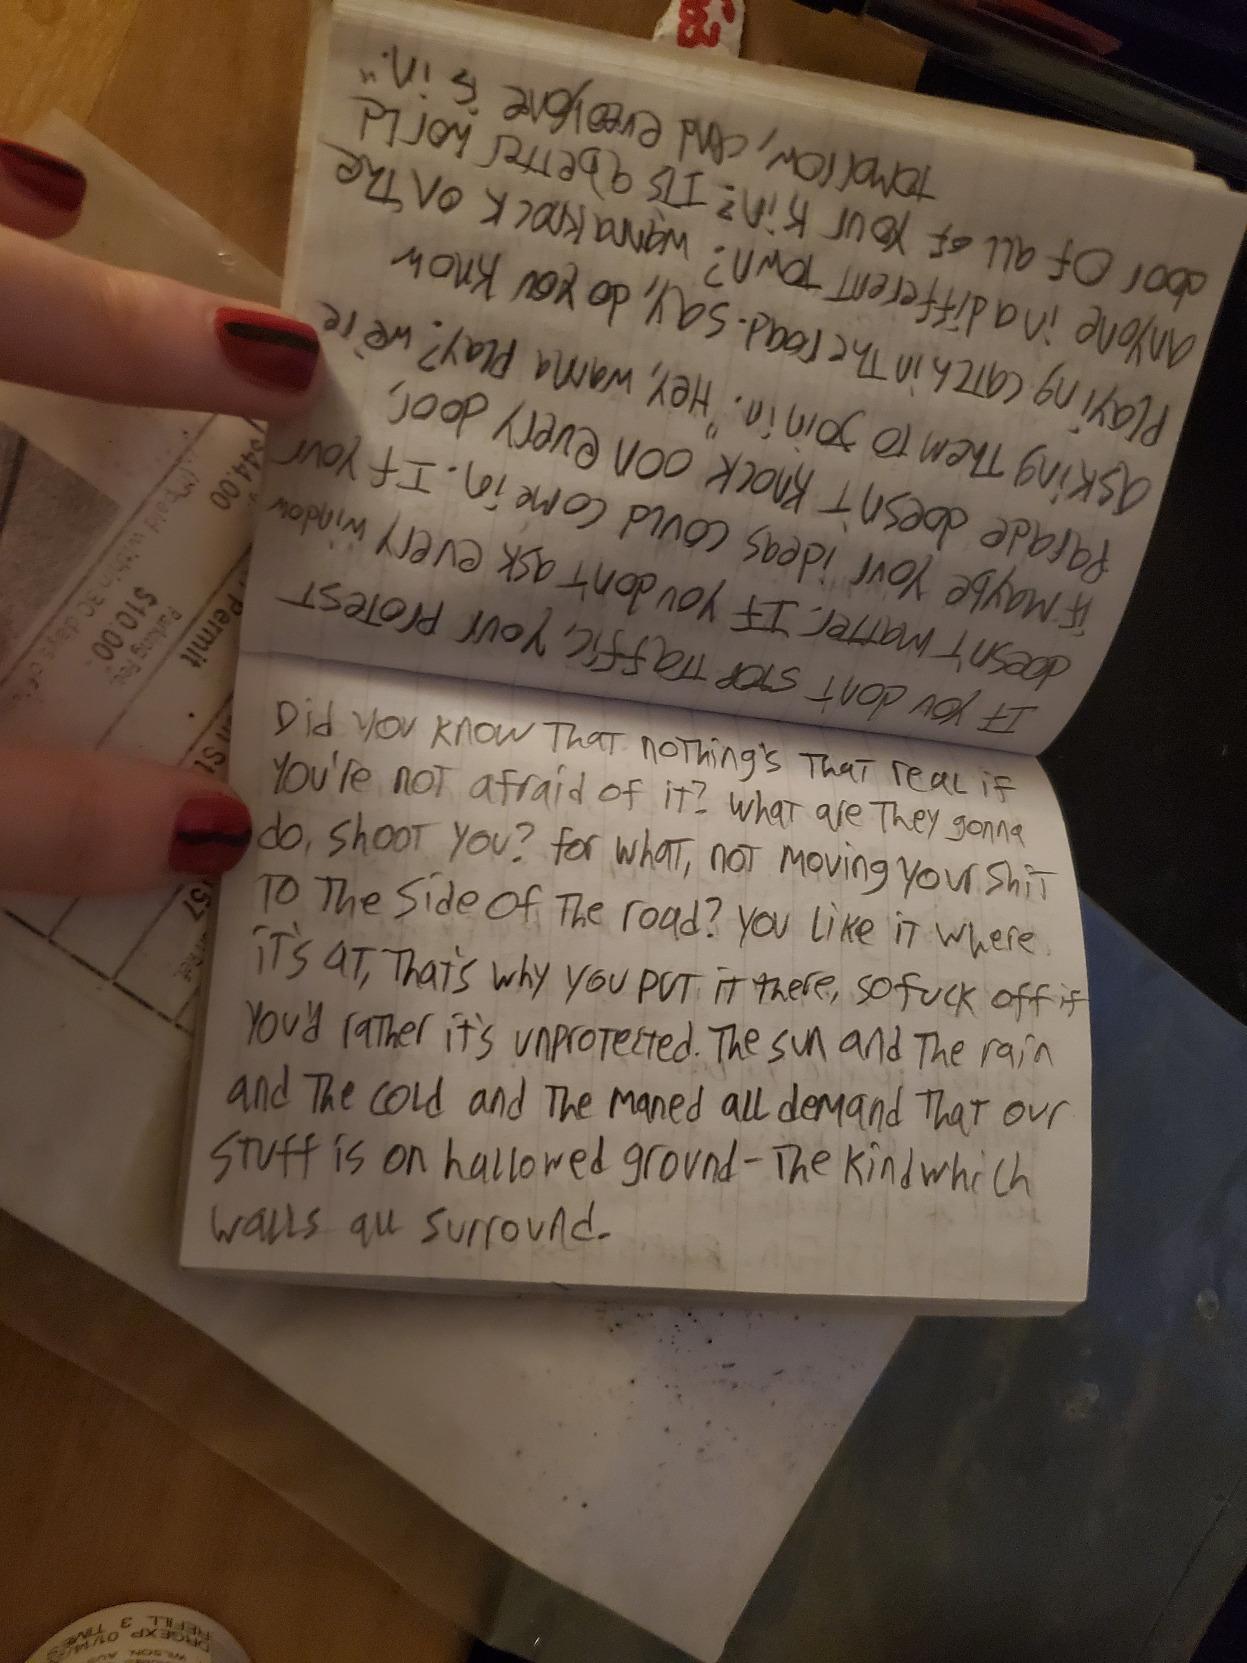 If you dont stop traffic, your protest
doesn't matter. If you dont ask every window
if maybe your ideas could come in. If your
parade doesn't knock oon every door,
asking them to join in. "Hey, wanna play? we're
playing catch in the road. Say, do you know
anyone in a different town? wanna knock on the
door of all of your kin? It's a better world
tomorrow, and everyone is in."
Did you know that nothing's that real if
you're not afraid of it? what are they gonna
do, shoot you? for what, not moving your shit
to the side of the road? you like it where
it's at, that's why you put it there, so fuck off if
you'd rather it's unprotected. The sun and the rain
and the cold and the maned all demand that our
stuff is on hallowed ground - the kind which
walls all surround.
$44.00
(if paid within 30 days of
$10.00
Parking Fee
Permit
57
DRGEXP 01/14/
REFILL 3 TIMES
WILSON, AUS